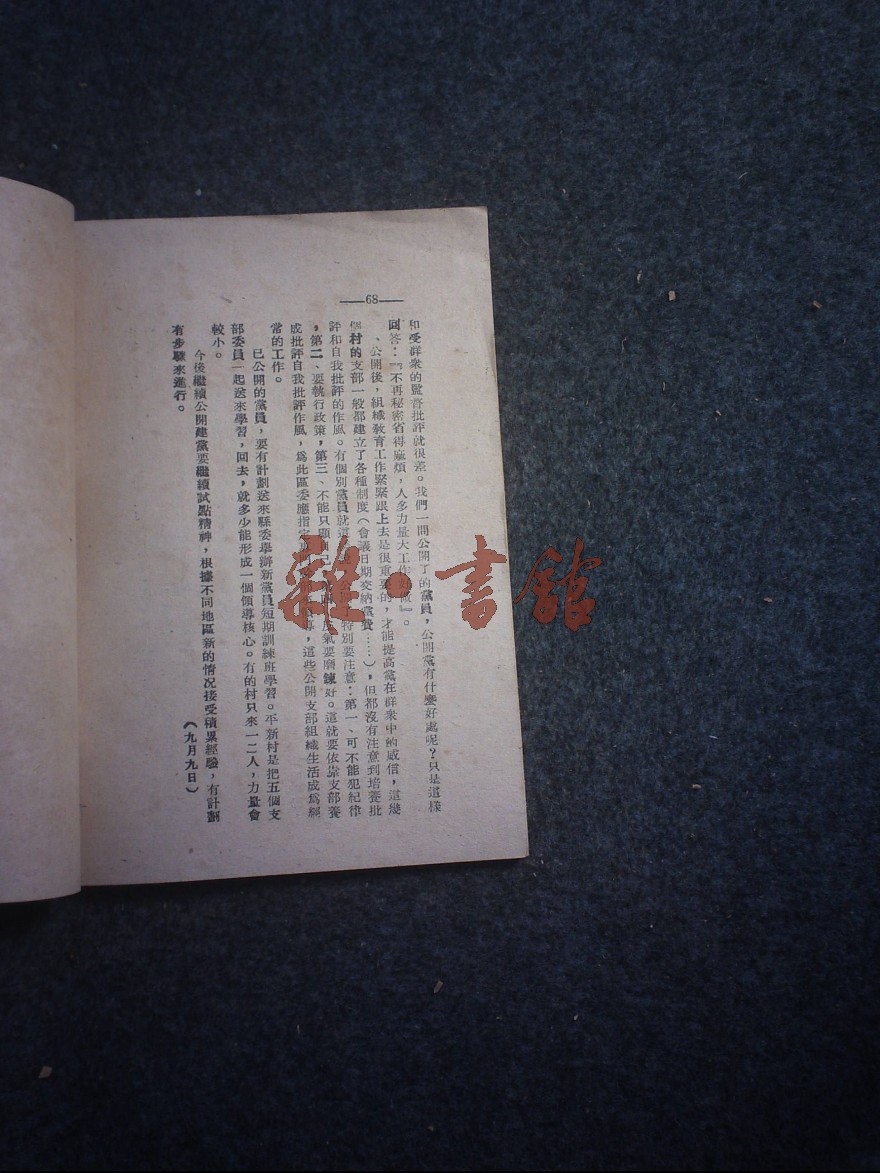 —68—
和受群衆的監督批評就很差。我們一問公開了的黨員，公開黨有什麼好處呢？只是這樣
回答：『不再秘密省得麻煩，人多力量大工作好做』。
、公開後，組織教育工作緊緊跟上去是很重要的，才能提高黨在群衆中的威信，這幾
個村的支部一般都建立了各種制度（會議日期交納黨費……），但都沒有注意到培養批
評和自我批評的作風。有個別黨員就這 特別要注意：第一、可不能犯紀律
，第二、要執行政策，第三、不能只顧自己 氣要磨鍊好。這就要依靠支部養
成批評自我批評作風，爲此區委應指定 導，這些公開支部組織生活成爲經
常的工作。
已公開的黨員，要有計劃送來縣委學辦新黨員短期訓練班學習。平新村是把五個支
部委員一起送來學習，回去，就多少能形成一個領導核心。有的村只來一二人，力量會
較小。
今後繼續公開建黨要繼續試點精神，根據不同地區新的情况接受積累經驗，有計劃
有步驟來進行。
（九月九日）
雜·書館